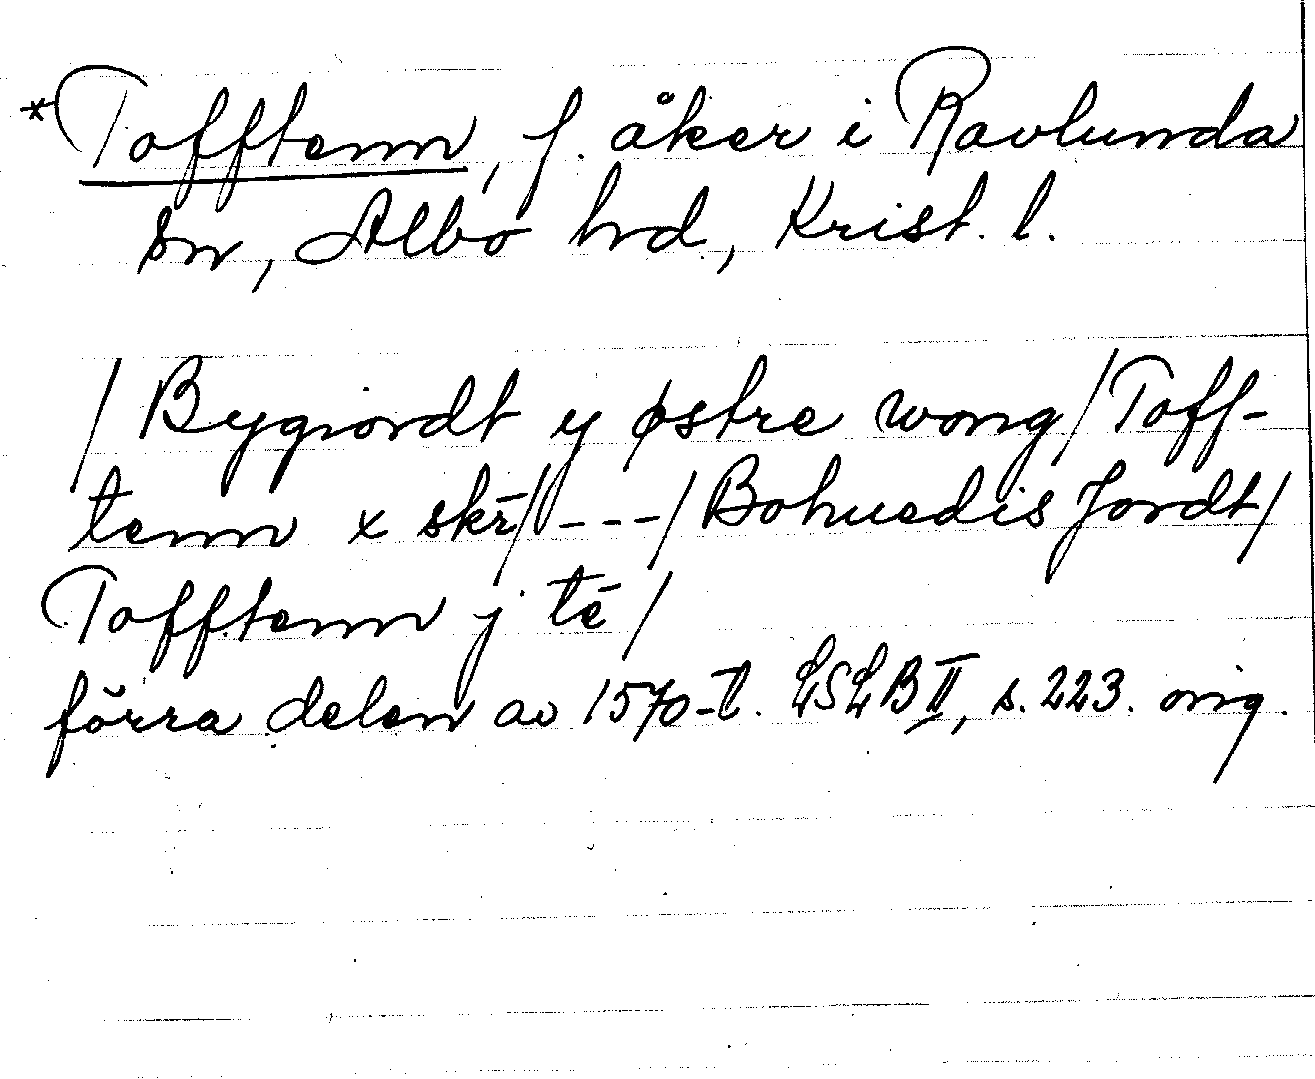 *Tofftenn, f. åker i Ravlunda
sn, Albo hd, Krist. l.
/Bygiordt y østre wong/Toff-
tenn x skr̄/---/Bohuedis Jordt/
Tofftenn j tē/
förra delen av 1570-t. LSLB II, s. 223. orig.